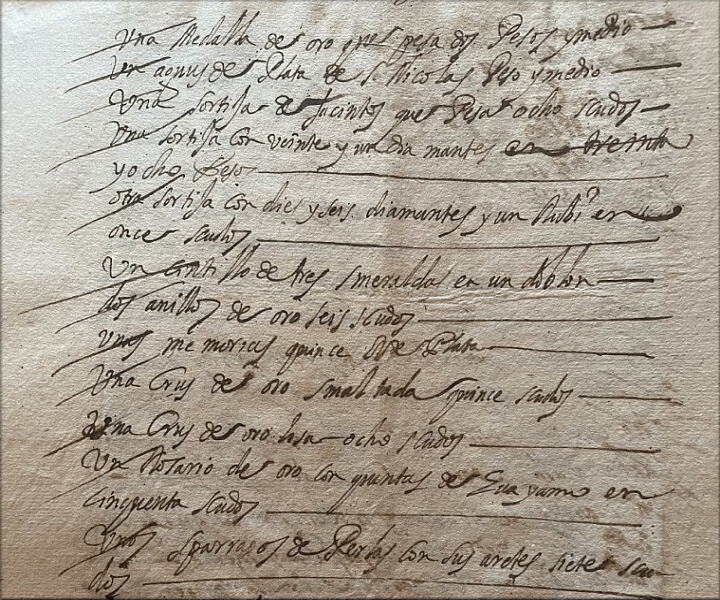 Una Medalla de oro que pesa dos Pesos y medio
Un agnus de Plata de S. Nicolas Peso y medio
Una sortija de Jacintos que Pesa ocho scudos
Una sortija con veinte y un dia mantes en treinta
y ocho Pesos
otra sortija con dies y seis diamantes y un Rubi en
once scudos
Un cintillo de tres smeraldas en un doblon
dos anillos de oro seis scudos
unas me morias quince de Plata
Una Crus de oro smal tada quince scudos
Una Crus de oro lisa ocho scudos
Un Rosario de oro con quintas de en
cinquenta scudos
Unos sparragos de Perlas con sus aretes siete scu
dos